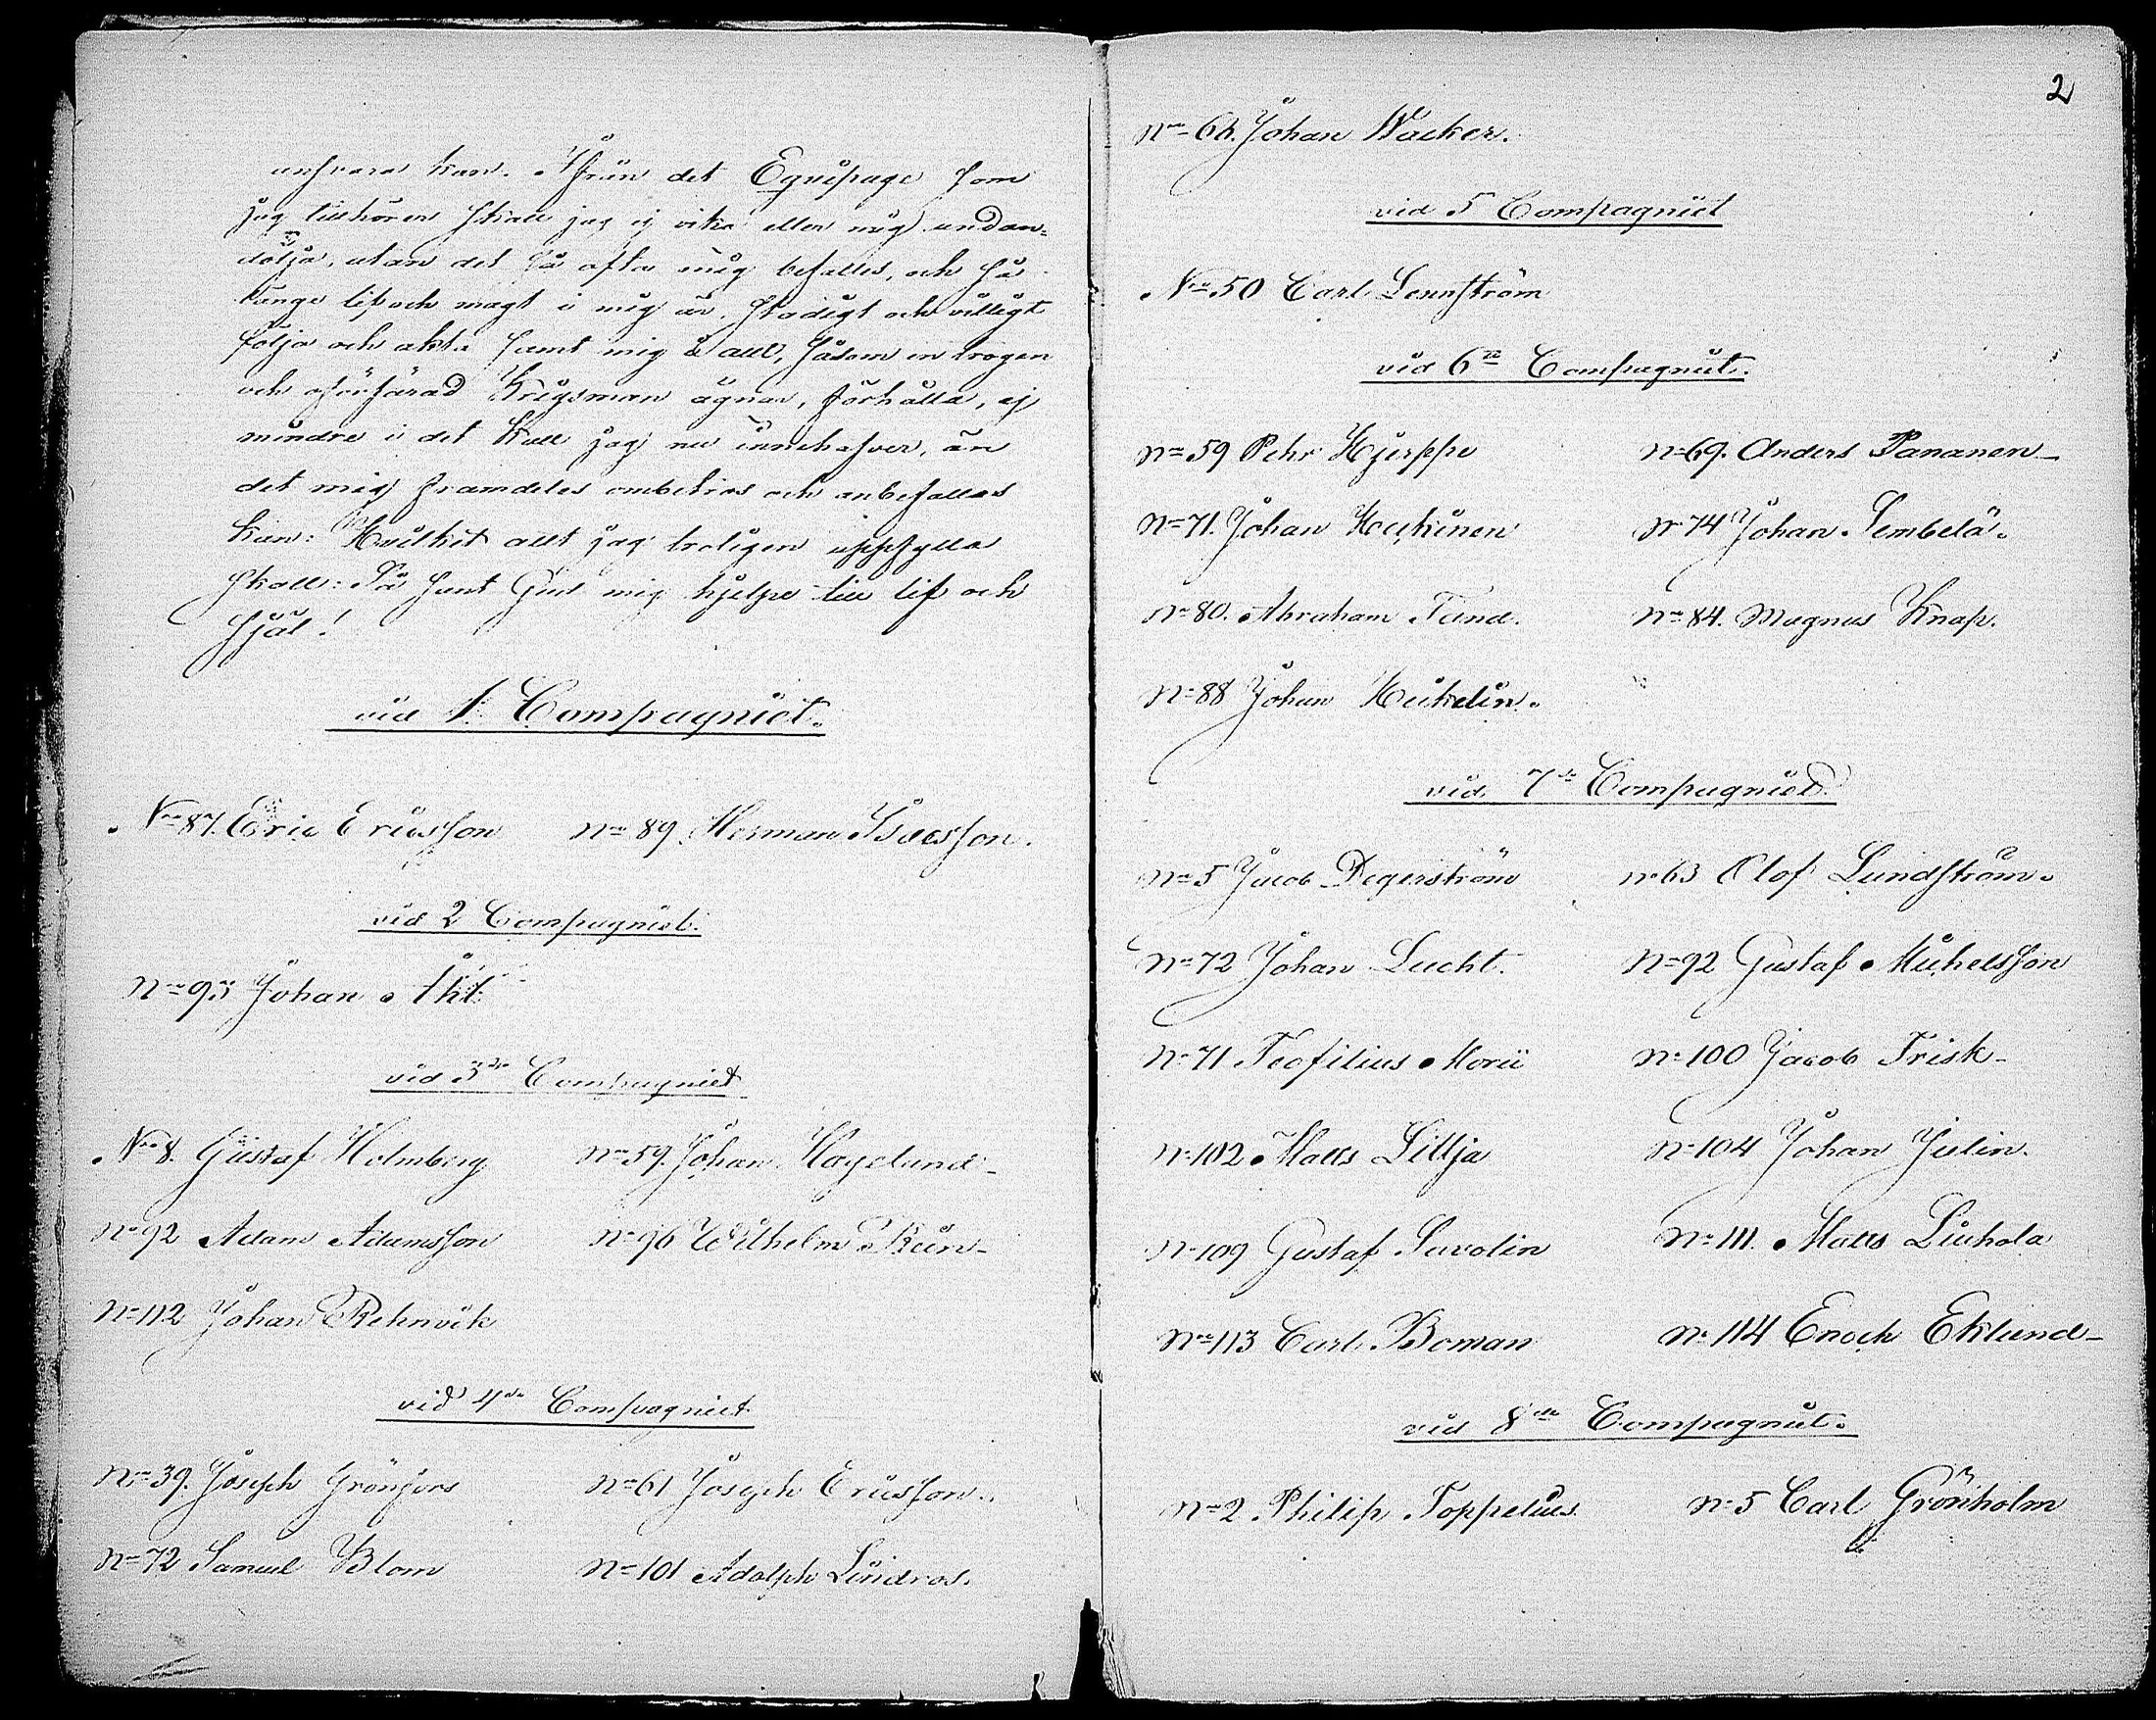 ansvara kan. Ifrån det Equipage som
jag tillhörer skall jag ej vika eller mig undan-
dölja, utan det så ofta mig befalles, och så
länge lif och magt i mig är, stadigt och villigt
följa och akta samt mig i allt, såsom en trogen
och oförfärad Krigsman ägnar, förhålla, ej
mindre i det Kall jag nu innehafver, än
det mig framdeles ombetros och anbefallas
kan: Hvilket allt jag troligen uppfylla
skall: Så sant Gud mig hjelpe till lif och
själ!
vid 1 Compagniet.
No 87. Eric Ericsson No 89. Herman Isacsson.
vid 2 Compagniet.
No 95 Johan Åkt
vid 3de Compagniet
No 8. Gustaf Holmberg No 59. Johan Hagelund
No 92 Adam Adamsson No 96 Wilhelm Keen
No 112 Johan Rehnvik
vid 4de Compagniet
No 39. Joseph Grönfors No 61 Joseph Ericsson.
No 72 Samuel Blom No 101 Adolph Lindros.
2
No 68. Johan Wacker.
vid 5 Compagniet
No 50 Carl Lennström
vid 6te Compagniet.
No 59 Pehr Hjerppe No 69. Anders Pananen
No 71. Johan Houkinen No 74 Johan Sembelä.
No 80. Abraham Tand. No 84. Magnus Knap.
No 88 Johan Heikelin.
vid 7de Compagniet
No 5 Jacob Degerström No 63 Olof Lundström.
No 72 Johan Lucht. No 92 Gustaf Michelsson
No 71 Teofilius Morii No 100 Jacob Frisk
No 102 Matts Lillja No 104 Johan Julin.
No 109 Gustaf Savolin No 111. Matts Liuhola
No 113 Carl Boman No 114 Enoch Eklund
vid 8de Compagniet.
No 2. Philip Toppelius. No 5 Carl Grönholm